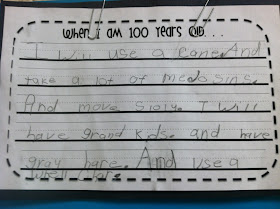 When I am 100 Years Old...
I will use a cane. And
take a lot of medosins.
And move sloly. I will
have grand kids. and have
gray hare. And use a
whell char.